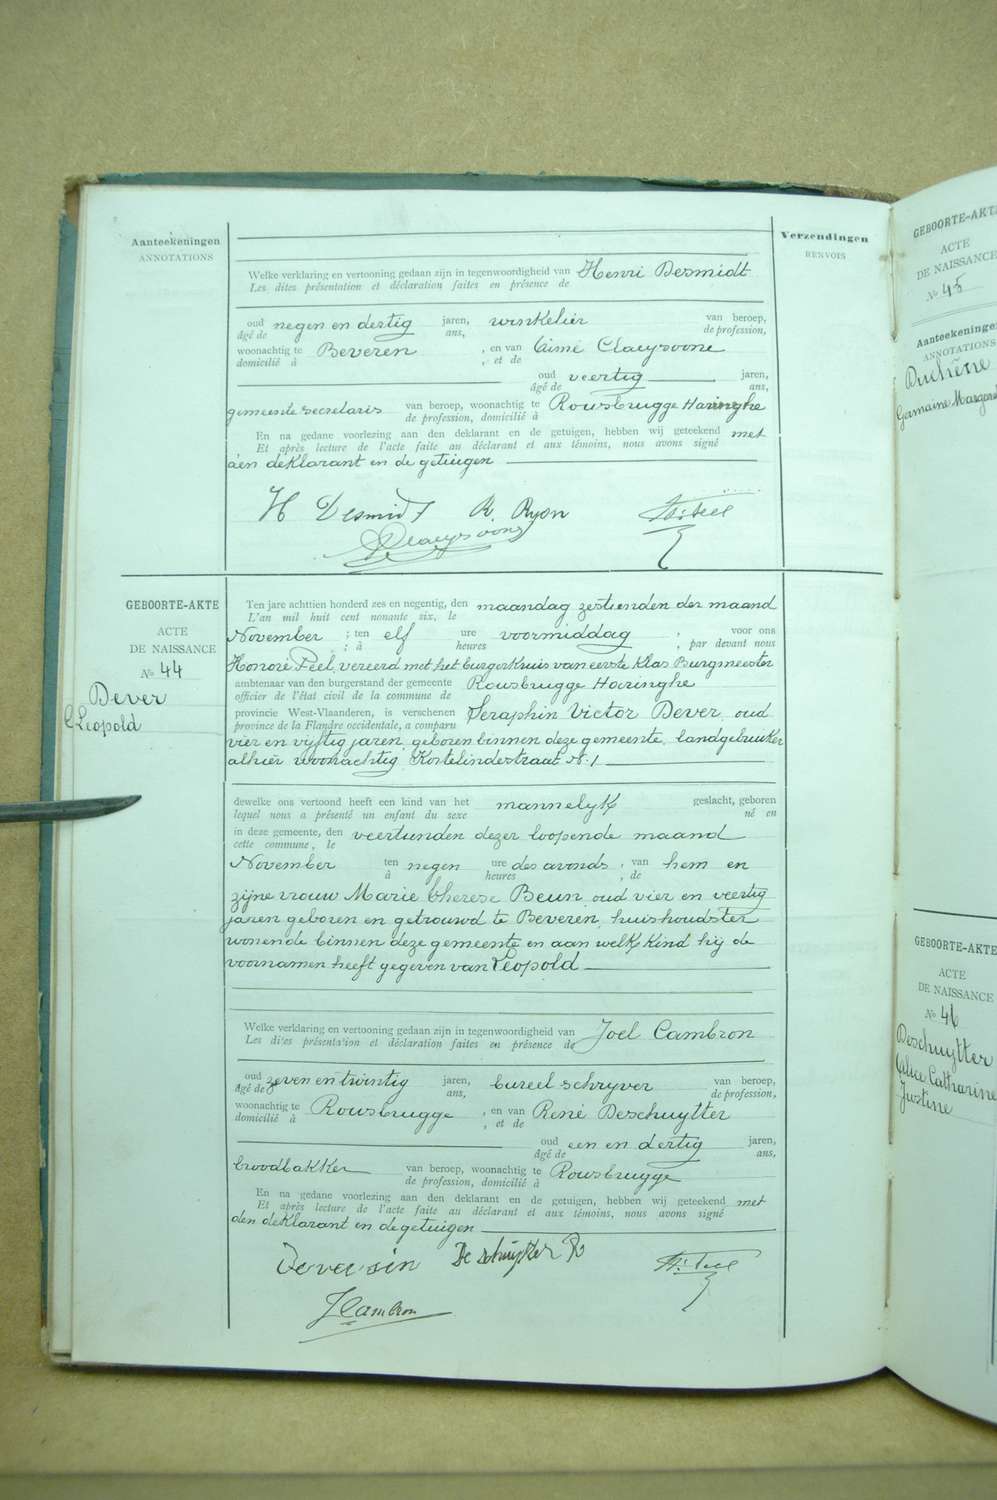 Aanteekeningen
ANNOTATIONS
Verzendingen
RENVOIS
Welke verklaring en vertooning gedaan zijn in tegenwoordigheid van Henri Desmidt
Les dites présentation et déclaration faites en présence de
oud negen en dertig jaren, winkelier van beroep,
âgé de ans, de profession,
woonachtig te Beveren , en van Aimé Claeysoone
domicilié à , et de
oud veertig jaren,
âgé de ans,
gemeente secretaris van beroep, woonachtig te Rousbrugge Haringhe
de profession, domicilié à
En na gedane voorlezing aan den deklarant en de getuigen, hebben wij geteekend met
Et après lecture de l'acte faite au déclarant et aux témoins, nous avons signé
den deklarant en de getuigen
H Desmidt R Ryon H. Peel
Claeysoone
GEBOORTE-AKTE
ACTE
DE NAISSANCE
No 44
Dever
Leopold
Ten jare achttien honderd zes en negentig, den maandag zestienden der maand
L'an mil huit cent nonante six, le
November ; ten elf ure voormiddag ; voor ons
; à heures , par devant nous
Honoré Peel, vereerd met het burgerkruis van eerste klas Burgmeester
ambtenaar van den burgerstand der gemeente Rousbrugge Haringhe
officier de l'état civil de la commune de
provincie West-Vlaanderen, is verschenen Seraphin Victor Dever, oud
province de la Flandre occidentale, a comparu
vier en vyftig jaren, geboren binnen deze gemeente, landgebruiker
alhier woonachtig Kortelindestraat N. 1
dewelke ons vertoond heeft een kind van het mannelyk geslacht, geboren
lequel nous a présenté un enfant du sexe né en
in deze gemeente, den veertienden dezer loopende maand
cette commune, le
November ten negen ure des avonds , van hem en
à heures , de
zijne vrouw Marie Therese Beun, oud vier en veertig
jaren geboren en getrouwd te Beveren, huishoudster
wonende binnen deze gemeente en aan welk kind hij de
voornamen heeft gegeven van Leopold
Welke verklaring en vertooning gedaan zijn in tegenwoordigheid van Joel Cambron
Les dites présentation et déclaration faites en présence de
oud zeven en twintig jaren, bureel schryver van beroep,
âgé de ans, de profession,
woonachtig te Rousbrugge , en van René Deschuytter
domicilié à , et de
oud een en dertig jaren,
âgé de ans,
broodbakker van beroep, woonachtig te Rousbrugge
de profession, domicilié à
En na gedane voorlezing aan den deklarant en de getuigen, hebben wij geteekend met
Et après lecture de l'acte faite au déclarant et aux témoins, nous avons signé
den deklarant en de getuigen
De schuytter R H. Peel
J Cambron
GEBOORTE-AKTE
ACTE
DE NAISSANCE
No 45
Aanteekeningen
ANNOTATIONS
Duchêne
Germaine
GEBOORTE-AKTE
ACTE
DE NAISSANCE
No 46
Deschuytter
Alice Catharine
Justine